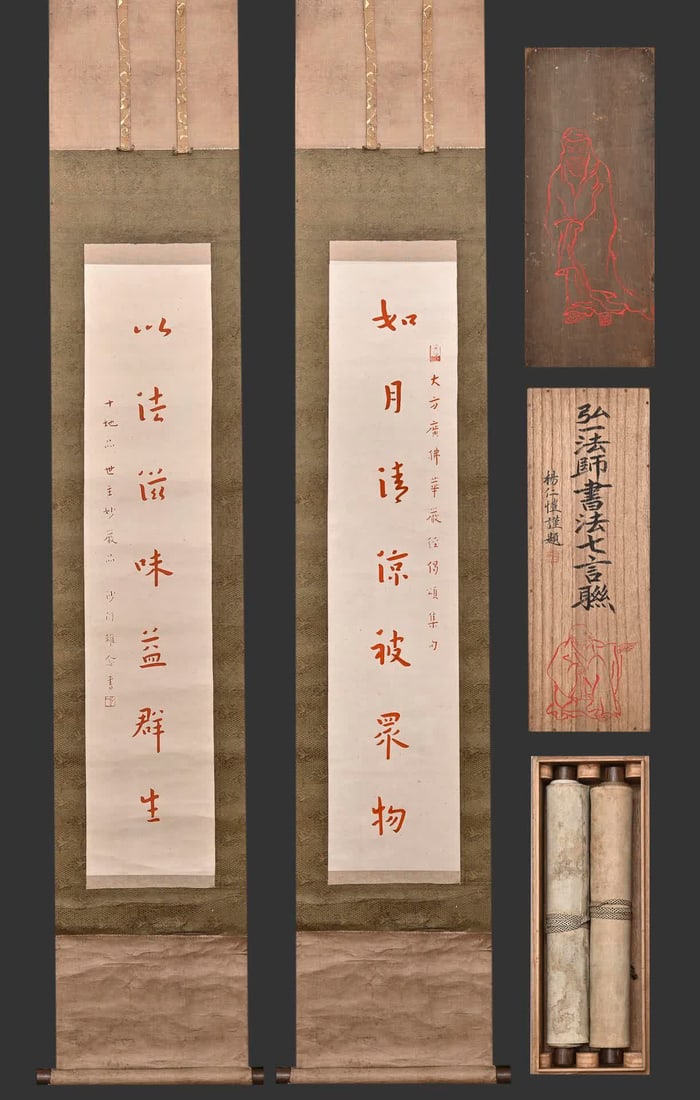 如月清涼被眾物
大方廣佛華嚴經偈頌集句
以法滋味益群生
十地品 世主妙嚴品 沙門 念書
弘一法師書法七言聯
楊仁愷謹題